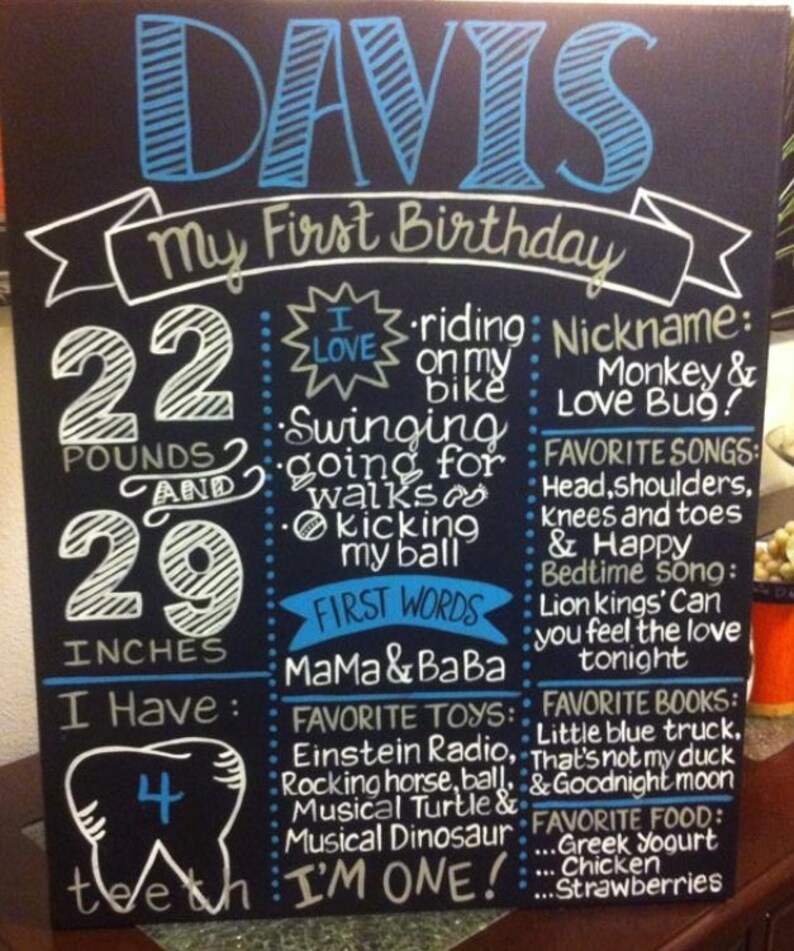 DAVIS
My First Birthday
22
POUNDS
AND
29
INCHES
I Have:
4
teeth
I
LOVE
·riding
on my
bike
·Swinging
·going for
walks
·kicking
my ball
FIRST WORDS
MaMa & BaBa
FAVORITE TOYS:
Einstein Radio,
Rocking horse, ball,
Musical Turtle &
Musical Dinosaur
I'M ONE!
Nickname:
Monkey &
Love Bug!
FAVORITE SONGS:
Head, shoulders,
knees and toes
& Happy
Bedtime song:
Lion kings' Can
you feel the love
tonight
FAVORITE BOOKS:
Little blue truck,
That's not my duck
& Goodnight moon
FAVORITE FOOD:
...Greek Yogurt
... Chicken
...Strawberries